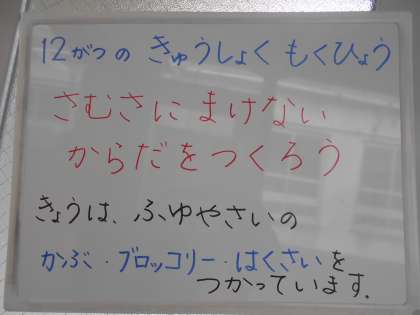 12がつの きゅうしょく もくひょう
さむさに まけない
からだを つくろう
きょうは、ふゆやさいの
かぶ・ブロッコリー・はくさいを
つかっています.